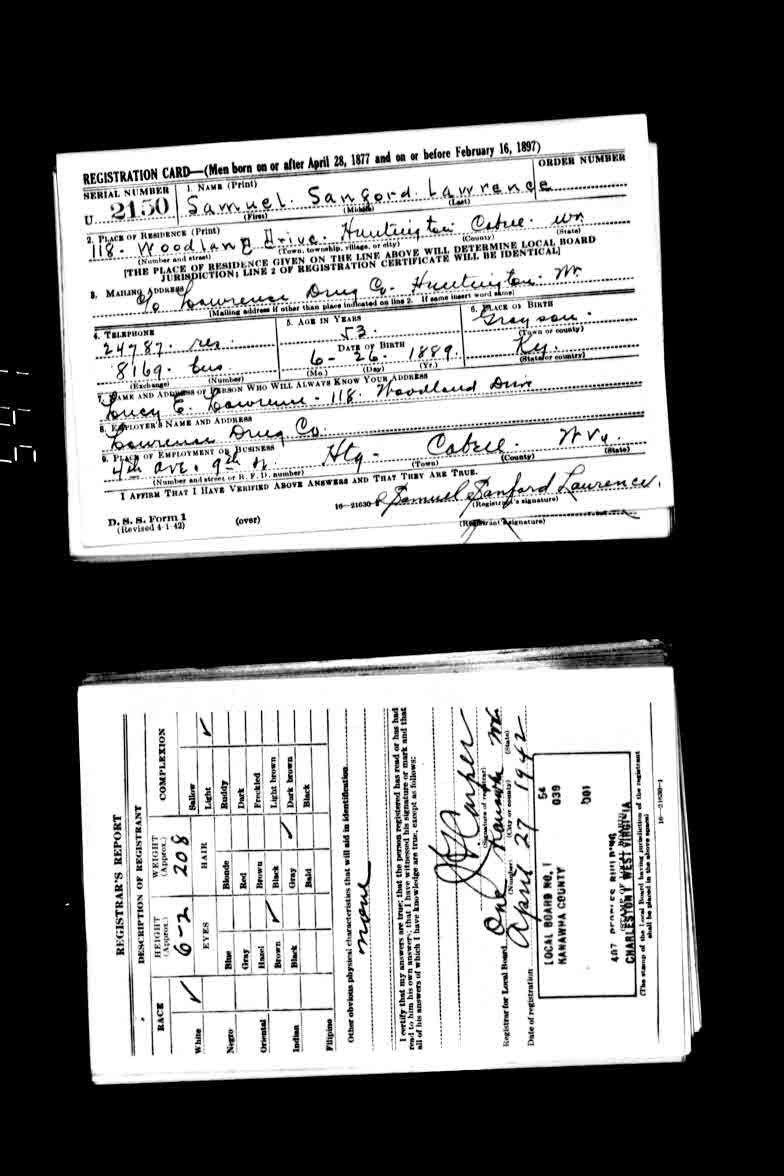 REGISTRATION CARD—(Men born on or after April 28, 1877 and on or before February 16, 1897)
SERIAL NUMBER
1. NAME (Print)
ORDER NUMBER
U 2150
Samuel. Sanford. Lawrence
(First) (Middle) (Last)
2. PLACE OF RESIDENCE (Print)
118. Woodland Drive. Huntington Cabell.
(Number and street) (Town, township, village, or city) (County) (State)
[THE PLACE OF RESIDENCE GIVEN ON THE LINE ABOVE WILL DETERMINE LOCAL BOARD
JURISDICTION; LINE 2 OF REGISTRATION CERTIFICATE WILL BE IDENTICAL]
3. MAILING ADDRESS
c/o Lawrence Drug Co. Huntington.
(Mailing address if other than place indicated on line 2. If same insert word same)
4. TELEPHONE
5. AGE IN YEARS
6. PLACE OF BIRTH
24787. res
53.
Grayson.
DATE OF BIRTH
(Town or county)
8169. bus
6- 26. 1889.
Ky.
(Exchange) (Number)
(Mo.) (Day) (Yr.)
(State or country)
7. NAME AND ADDRESS OF PERSON WHO WILL ALWAYS KNOW YOUR ADDRESS
Lucy E. Lawrence - 118. Woodland Drive
8. EMPLOYER'S NAME AND ADDRESS
Lawrence Drug Co.
9. PLACE OF EMPLOYMENT OR BUSINESS
4th ave. 9th st Htg- Cabell. W Va.
(Number and street or R. F. D. number) (Town) (County) (State)
I AFFIRM THAT I HAVE VERIFIED ABOVE ANSWERS AND THAT THEY ARE TRUE.
Samuel Sanford Lawrence.
D. S. S. Form 1
(Revised 4-1-42)
(over)
16—21630-2
(Registrant's signature)
(Registrant's signature)
REGISTRAR'S REPORT
DESCRIPTION OF REGISTRANT
RACE
HEIGHT (Approx.)
WEIGHT (Approx.)
COMPLEXION
6-2
208
White ✓
EYES
HAIR
Sallow
Light ✓
Negro
Blue
Blonde
Ruddy
Gray
Red
Dark
Oriental
Hazel
Brown
Freckled
Brown ✓
Black
Light brown
Indian
Black
Gray ✓
Dark brown
Bald
Black
Filipino
Other obvious physical characteristics that will aid in identification
none
I certify that my answers are true; that the person registered has read or has had
read to him his own answers; that I have witnessed his signature or mark and that
all of his answers of which I have knowledge are true, except as follows:
Carper
(Signature of registrar)
Registrar for Local Board One Kanawha
(Number) (City or county) (State)
Date of registration April 27 1942
LOCAL BOARD NO. 1 54
KANAWHA COUNTY 039
001
407 PEOPLES BUILDING
(STAMP OF LOCAL BOARD)
CHARLESTON 1 WEST VIRGINIA
(The stamp of the Local Board having jurisdiction of the registrant
shall be placed in the above space)
16—21630-1